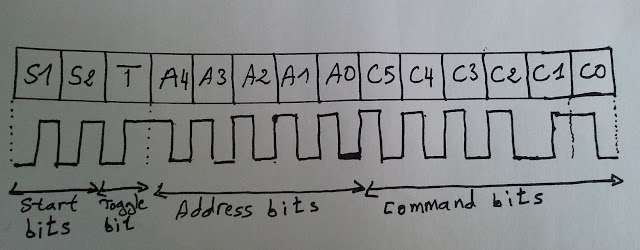 S1 S2 T A4 A3 A2 A1 A0 C5 C4 C3 C2 C1 C0
Start bits
Toggle bit
Address bits
Command bits